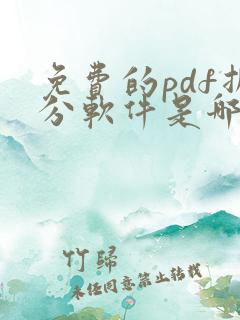 免費的pdf
分軟件是哪
竹歸
未经同意禁止转载